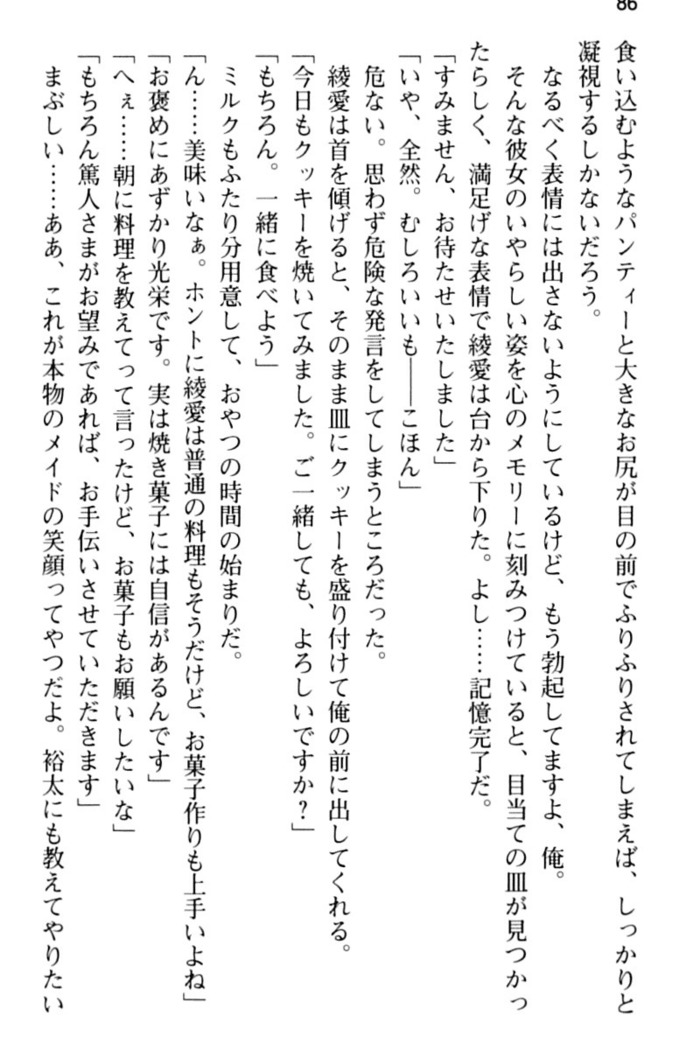 86
食い込むようなパンティーと大きなお尻が目の前でふりふりされてしまえば、しっかりと
凝視するしかないだろう。
なるべく表情には出さないようにしているけど、もう勃起してますよ、俺。
そんな彼女のいやらしい姿を心のメモリーに刻みつけていると、目当ての皿が見つかっ
たらしく、満足げな表情で綾愛は台から下りた。よし……記憶完了だ。
「すみません、お待たせいたしました」
「いや、全然。むしろいいも――こほん」
危ない。思わず危険な発言をしてしまうところだった。
綾愛は首を傾げると、そのまま皿にクッキーを盛り付けて俺の前に出してくれる。
「今日もクッキーを焼いてみました。ご一緒しても、よろしいですか？」
「もちろん。一緒に食べよう」
ミルクもふたり分用意して、おやつの時間の始まりだ。
「ん……美味いなぁ。ホントに綾愛は普通の料理もそうだけど、お菓子作りも上手いよね」
「お褒めにあずかり光栄です。実は焼き菓子には自信があるんです」
「へぇ……朝に料理を教えてって言ったけど、お菓子もお願いしたいな」
「もちろん篤人さまがお望みであれば、お手伝いさせていただきます」
まぶしい……ああ、これが本物のメイドの笑顔ってやつだよ。裕太にも教えてやりたい